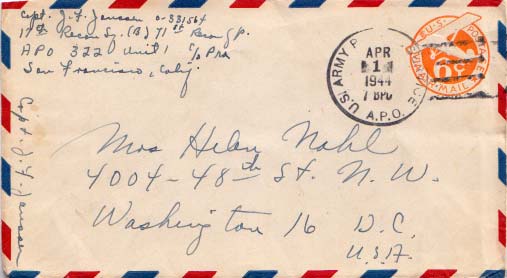 Capt. J. F. Janssen O-331564
17th Recon Sq. (B) 71st Recon Gp.
APO 322 Unit 1 c/o PM
San Francisco, Calif
U.S. ARMY P
APR
1
1944
1 BPO
A.P.O.
U.S. POSTAGE
6¢
AIR MAIL
Capt. J. F. Janssen
Mrs Helen Nahl
4004-48th St. N. W.
Washington 16 D.C.
U.S.A.